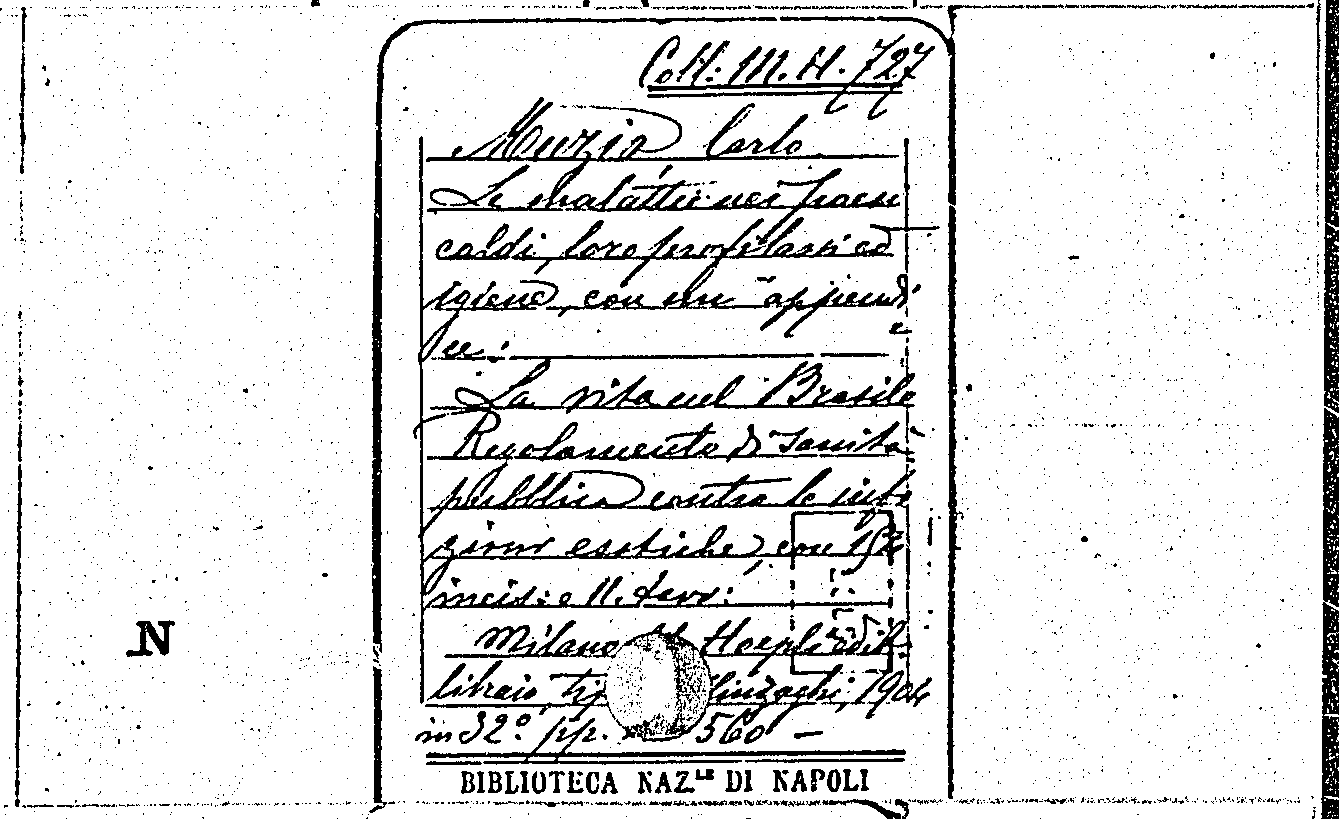 Coll: M. H. 727
Muzio Carlo
Le malattie nei paesi
caldi, loro profilassi ed
igiene, con un appendi
ce:
La vita nel Brasile
Regolamento di Sanità
pubblica contro le infe
zioni esotiche, con
incis: e 11. tavv:
Milano Hoepli edit.
libraio, tip 1904
in 32º pp. 560 —
N
BIBLIOTECA NAZ.LE DI NAPOLI